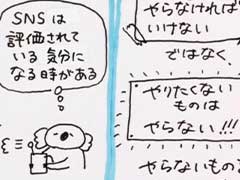 SNSは
評価されて
いる気分に
なる時がある
やらなければ
いけない
ではなく
やりたくない
ものは
やらない!!!
やらないもの